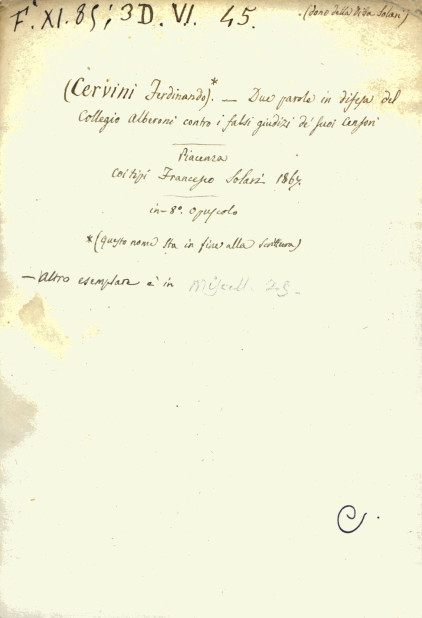 F. XI. 85; 3D. VI. 45.
(dono della Ditta Solari)
(Cervini Ferdinando)*. — Due parole in difesa del
Collegio Alberoni contro i falsi giudizi de' suoi Censori
Piacenza
Coi tipi Francesco Solari 1867.
in-8º. opuscolo
*(questo nome sta in fine alla scrittura)
— Altro esemplare è in Miscell. 25-
C.